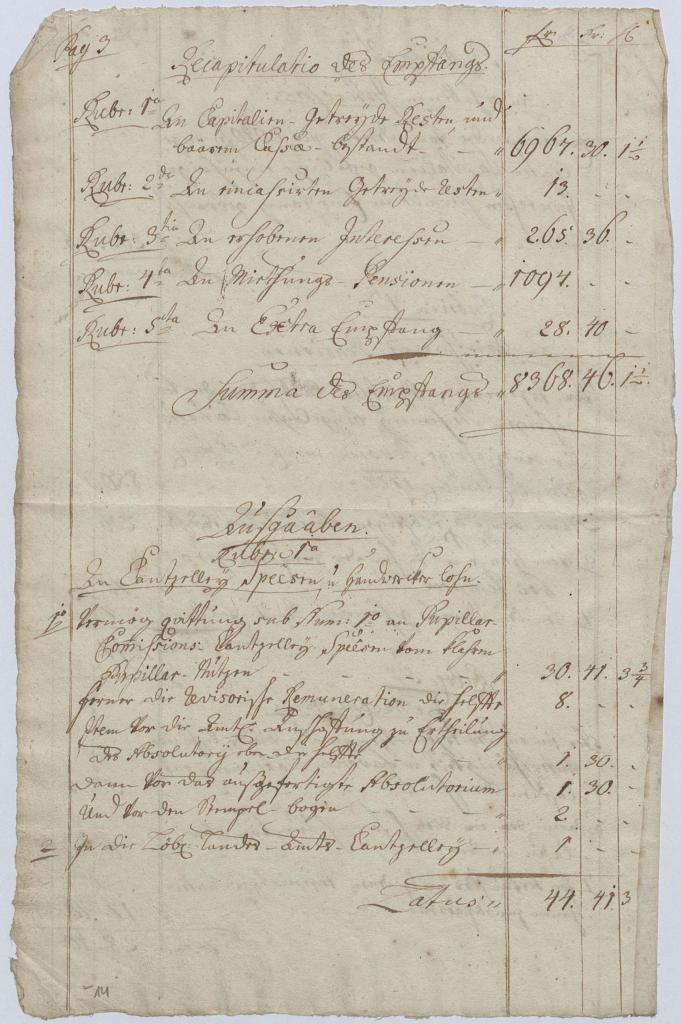 Pag 3 fr. Xr. ₰
Recapitulatio des Empfangs.
Rubr: 1a An Capitalien- Getreyde Resten und
baarem Cassæ- bestandt - " 6967. 30. 1 1/2
Rubr: 2da An eincassirten Getreyde Resten " 13. - -
Rubr: 3tia An erhobenen Interessen - " 265. 36. -
Rubr: 4ta An Miethungs- Pensionen - " 1094. - -
Rubr: 5ta An Extra Empfang - " 28. 40 -
Summa des Empfangs " 8368. 46. 1 1/2.
Ausgaaben.
Rubr: 1a
An Cantzelley Speesen, u Handwerker lohn.
1o Vermög quittung sub Num: 1o an Pupillar
Commissions- Cantzelley Speesen vom
Pupillar- Nutzen - - - " 30. 41. 3 3/4
ferner die revisorische Remuneration die helffte 8. - -
Item vor die Ambts Ausfertigung zu Ertheilung
des Absolutorij eben die helffte " 1. 30. -
dann vor das außgefertigte Absolutorium 1. 30. -
und vor den Stempel- bogen - - " 2. - -
2 In die Löbl: Landes- Ambts- Cantzelley - " 1 - -
Latus " 44. 41. 3
14